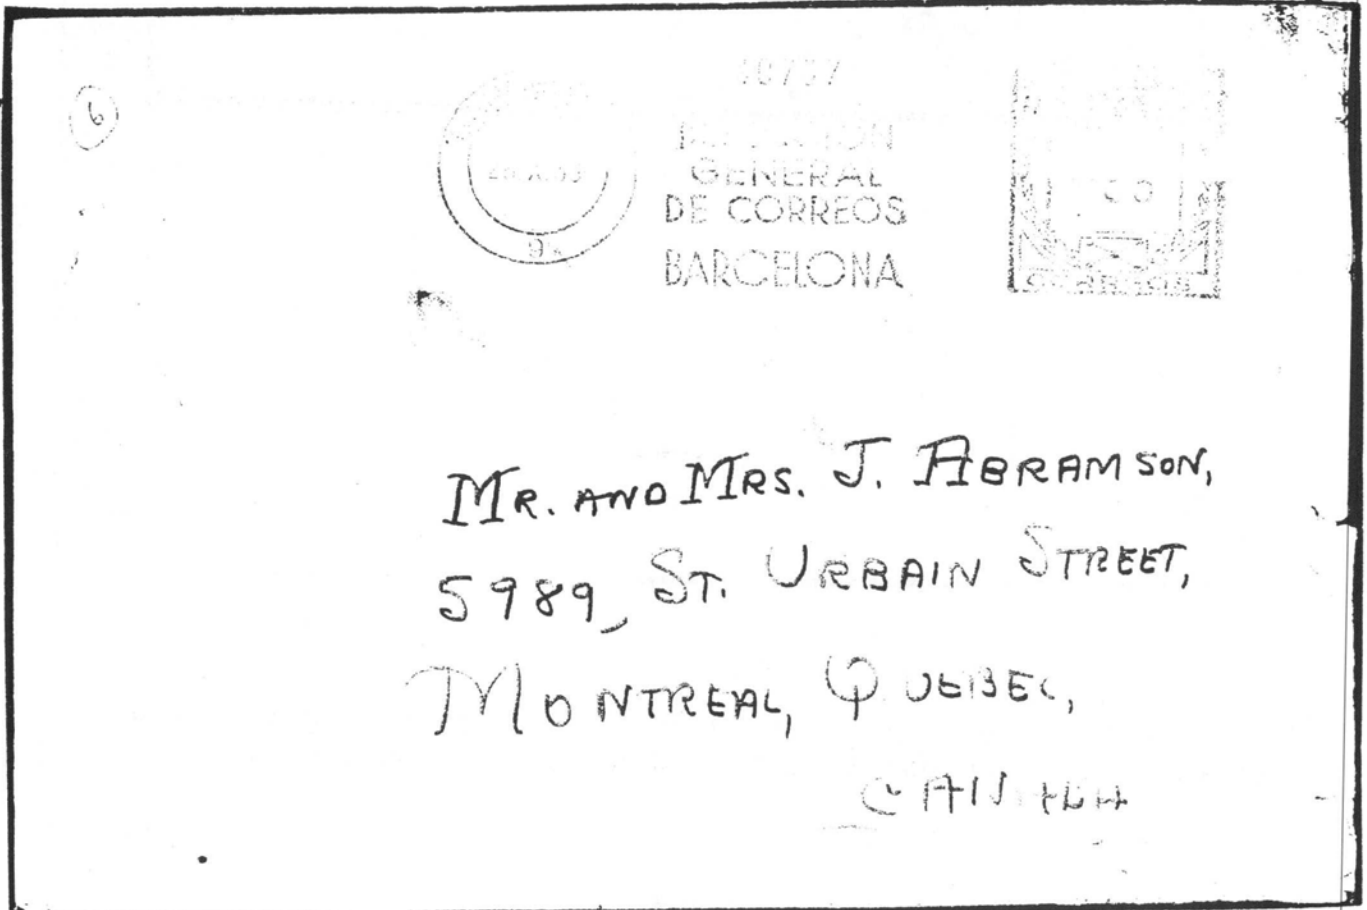 6
10737
GENERAL
DE CORREOS
BARCELONA
MR. AND MRS. J. ABRAMSON,
5989, ST. URBAIN STREET,
MONTREAL, QUEBEC,
CANADA